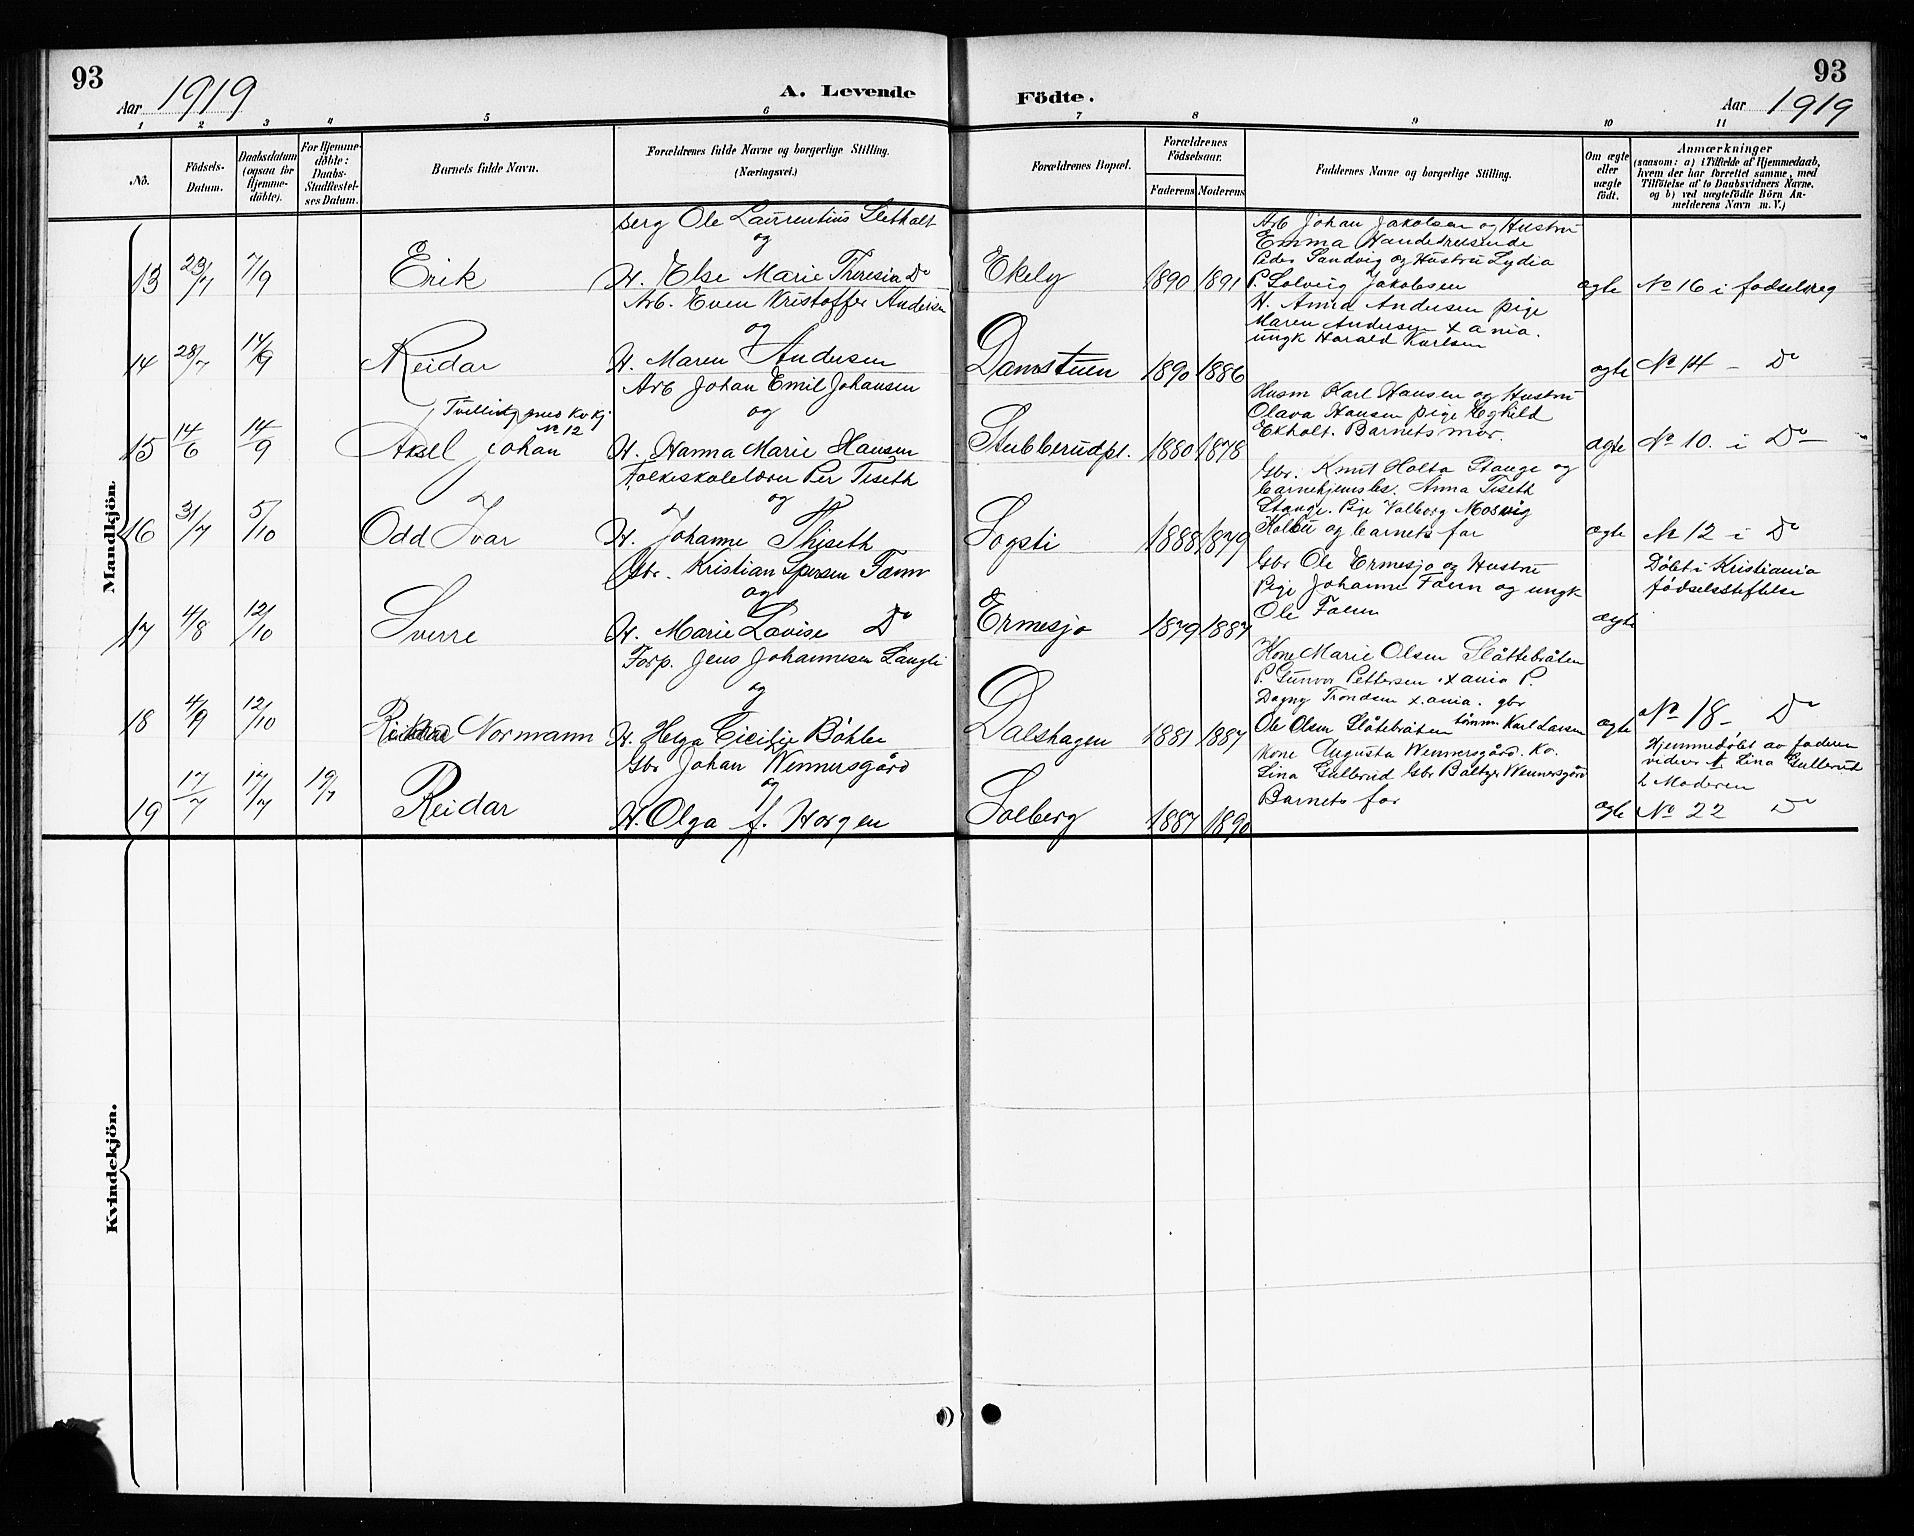 93
Aar 1919
A. Levende
Födte.
93
Aar 1919
1 2 3 4 5 6 7 8 9 10 11
No.
Födsels-
Datum.
Daabsdatum
(ogsaa for
Hjemme-
døbte).
For Hjemme-
døbte:
Daabs-
Stadfæstel-
ses Datum.
Barnets fulde Navn.
Forældrenes fulde Navne og borgerlige Stilling.
(Næringsvei.)
Forældrenes Bopæl.
Forældrenes
Fødselsaar.
Faderens Moderens
Faddernes Navne og borgerlige Stilling.
Om ægte
eller
uægte
født.
Anmærkninger
(saasom: a) i Tilfælde af Hjemmedaab,
hvem der har forrettet samme, med
Tilføielse af to Daabsvidners Navne,
og b) ved uægtefødte Börn An-
melderens Navn m. V.)
Mandkjön.
Ole Laurentius Sletholt
og
13 7/9 Erik H. Else Marie Theresia Do
Ekely 1890 1891
Arb Johan Jakobsen og Hustru
Emma
Peder Sandvig og Hustru Lydia
P. Solveig Jakobsen
ægte No 16 i fødselsreg
Arb. Even Kristoffer Andersen
og
14 28/7 14/9 Reidar H. Maren Andersen
Damstuen 1890 1886
Andersen pige
Maren Andersen x ania.
ungk Harald Karlsen
ægte No 14 - Do
Arb Johan Emil Johansen
og
Tvilling med Kvkj
No 12
15 14/6 14/9 Aksel Johan H. Hanna Marie Hansen
Stubberudpl. 1880 1878
Husm Karl Hansen og Hustru
Olava Hansen pige
Ekholt. Barnets mor.
ægte No 10. i Do
Folkeskolelærer Per Tiseth
og
16 31/7 5/10 Odd Ivar H. Johanne Thiseth
Sogsti 1888 1879
Gbr. Knut Holta Stange og
barnehjemsbs. Anna Tiseth
Stange. Pige Valborg Mosvig
Kolbu og barnets far
ægte No 12 i Do
Gbr. Kristian
og
17 4/8 12/10 Sverre H. Marie Lovise Do
Ermesjo 1879 1887
Gbr Ole Ermesjo og Hustru
Pige Johanne og ungk
Ole
ægte
Døbt i Kristiania
fødselsstiftelse
Forp. Jens Johannesen Langli
og
18 4/9 12/10 Normann H. Helga Cicilie Bøhler
Dalshagen 1881 1887
Kone Marie Olsen Slåttebråten
P. Gunvor Pettersen x ania P.
Dagny Trondsen x.ania. gbr
Ole Olsen Slåtebråten tømm Karl Larsen
ægte No 18 - Do
Gbr Johan Wennersgård
og
19 17/7 17/7 19/7 Reidar H. Olga f. Horgen
Solberg 1887 1890
Kone Augusta Wennersgård. Ko.
Lina Gullerud Gbr Baltzer Wennersgård
Barnets far
ægte
Hjemmedøbt av faderen
vidner Lina Gullerud
& Moderen
No 22 Do
Kvindekjön.